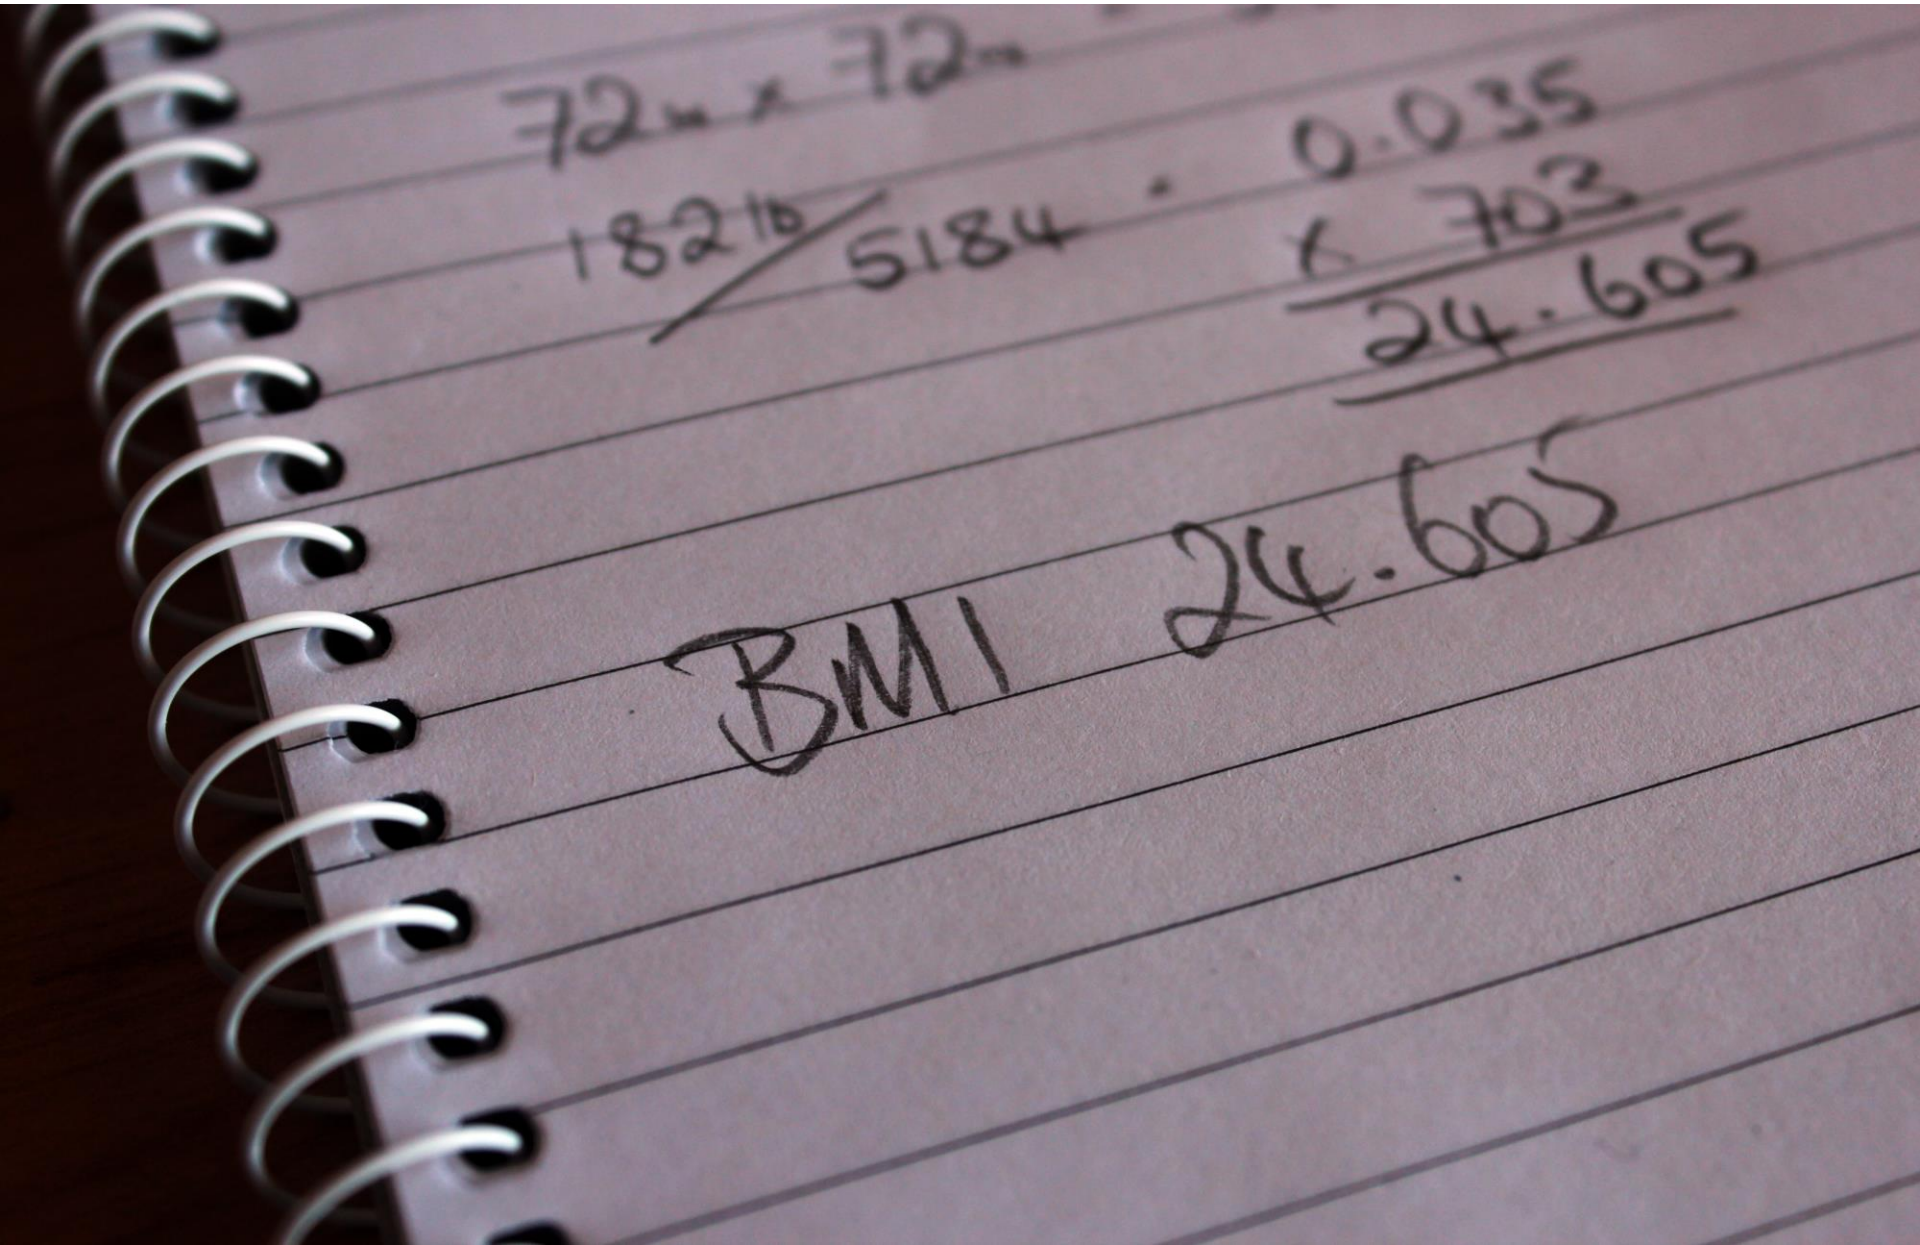 72in x 72in
182lb / 5184 = 0.035
x 703
24.605
BMI 24.605